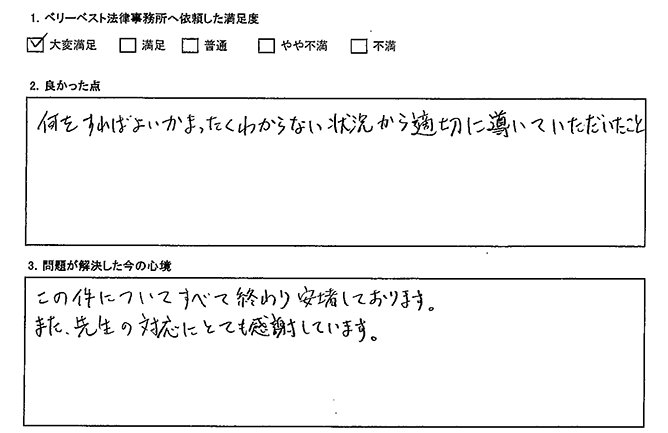 1. ベリーベスト法律事務所へ依頼した満足度
☑ 大変満足 ☐ 満足 ☐ 普通 ☐ やや不満 ☐ 不満
2. 良かった点
何をすればよいかまったくわからない状況から適切に導いていただいたこと
3. 問題が解決した今の心境
この件についてすべて終わり安堵しております。
また、先生の対応にとても感謝しています。